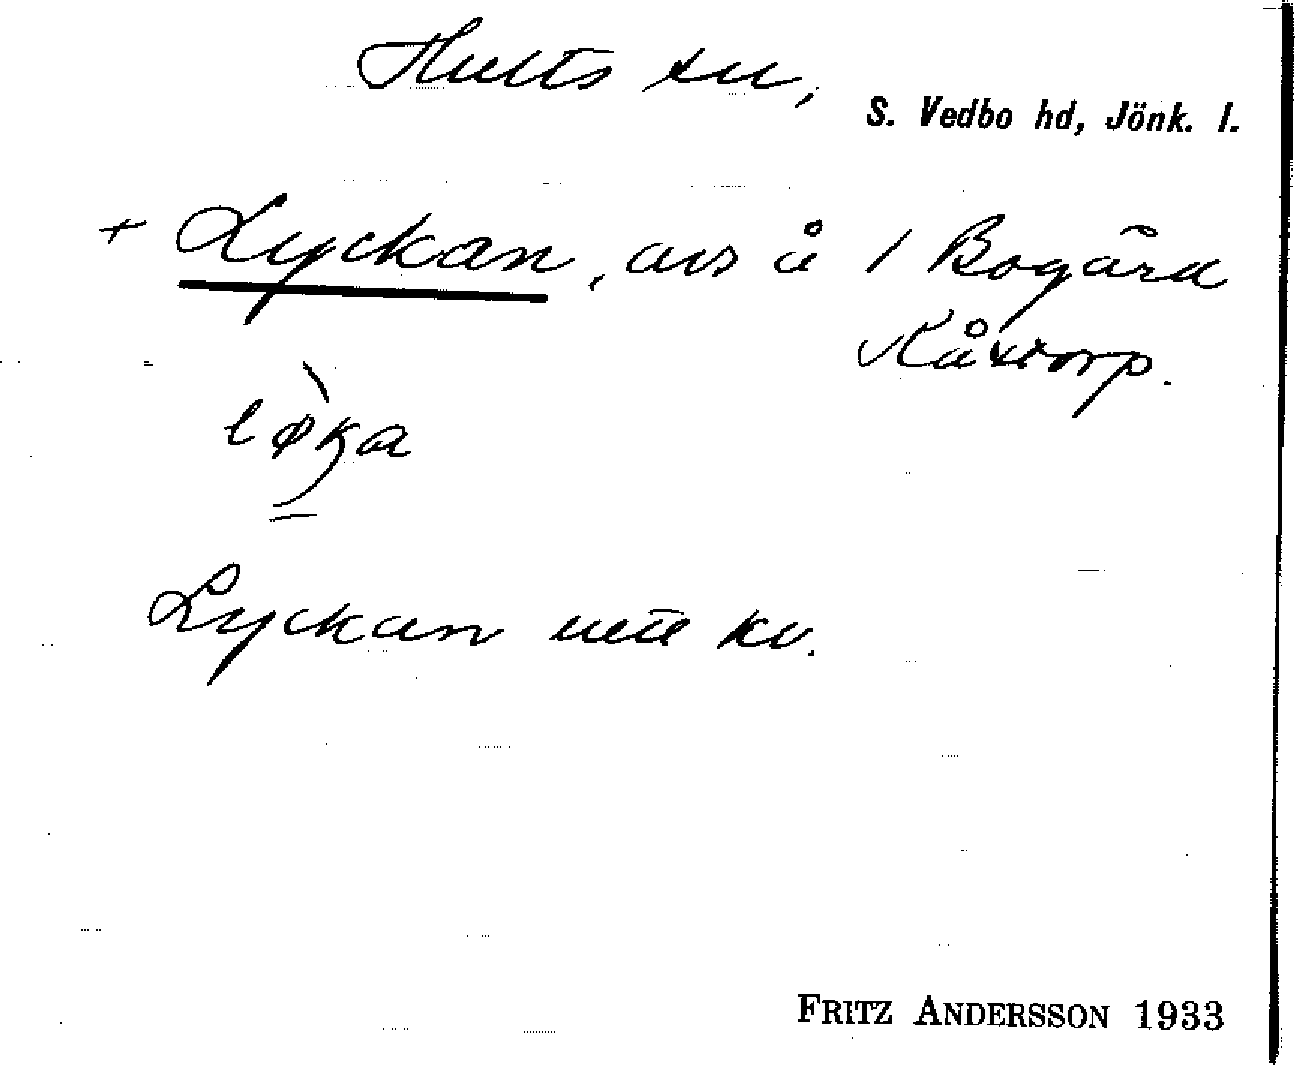 Hults sn,
S. Vedbo hd, Jönk. l.
+ Lyckan, avs å 1 Bogård
Kåxtorp.
lø̀ka
Lyckan utt kv.
FRITZ ANDERSSON 1933